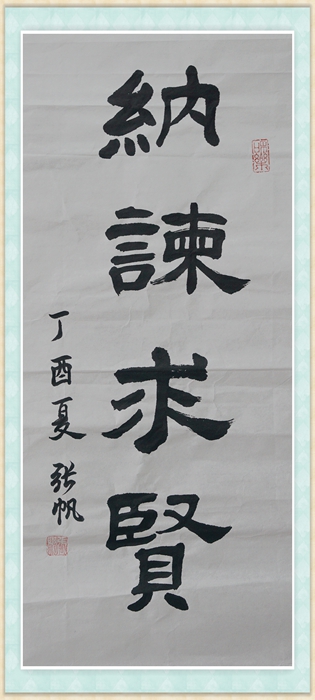 納諫求賢
丁酉夏 张帆